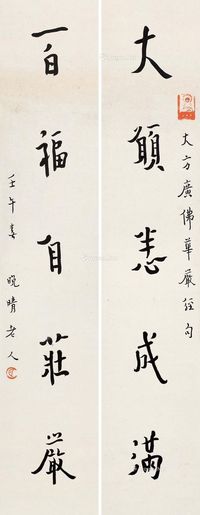 大方廣佛華嚴經句
大願悉成滿
百福自莊嚴
壬午 晚晴老人